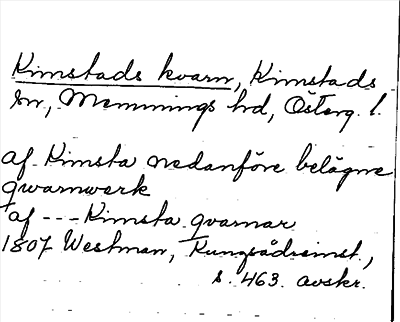 Kimstads kvarn, Kimstads
sn, Memmings hd, Österg. l.
af Kimsta nedanföre belägne
qwarnwerk
af --- Kimsta qvarnar
1807 Westman, Kungsådreinst.,
s. 463. avskr.